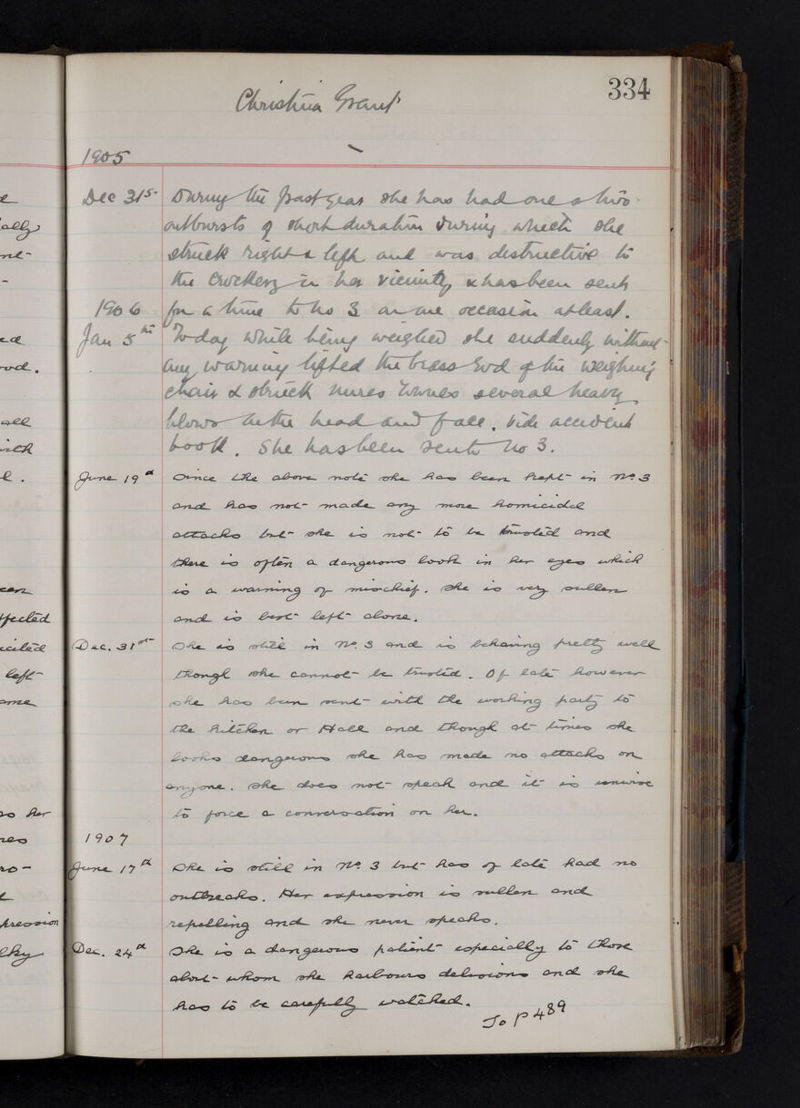 334
Christina Grant
1905
Dec 31st During the past year she has had one or two
outbursts of short duration during which she
struck right & left and was destructive to
the crockery in her vicinity & has been sent
1906 for a time to No 3 on one occasion at least.
Jan 5th Today while being weighed she suddenly without
any warning lifted the brass rod of the weighing
chair & struck nurse several heavy
blows on the head and face. Vide accident
book. She has been sent to No 3.
June 19th Since the above note she has been kept in No. 3
and has not made any more homicidal
attacks but she is not to be trusted and
there is often a dangerous look in her eyes which
is a warning of mischief. She is very sullen
and is best left alone.
Dec. 31st She is still in No. 3 and is behaving pretty well
though she cannot be trusted. Of late however
she has been sent with the working party to
the kitchen or Hall and though at times she
looks dangerous she has made no attacks on
anyone. She does not speak and it is unwise
to force a conversation on her.
1907
June 17th She is still in No. 3 but has of late had no
outbreaks. Her expression is sullen and
repelling and she never speaks.
Dec. 24th She is a dangerous patient especially to those
about whom she harbours delusions and she
has to be carefully watched.
To P 489